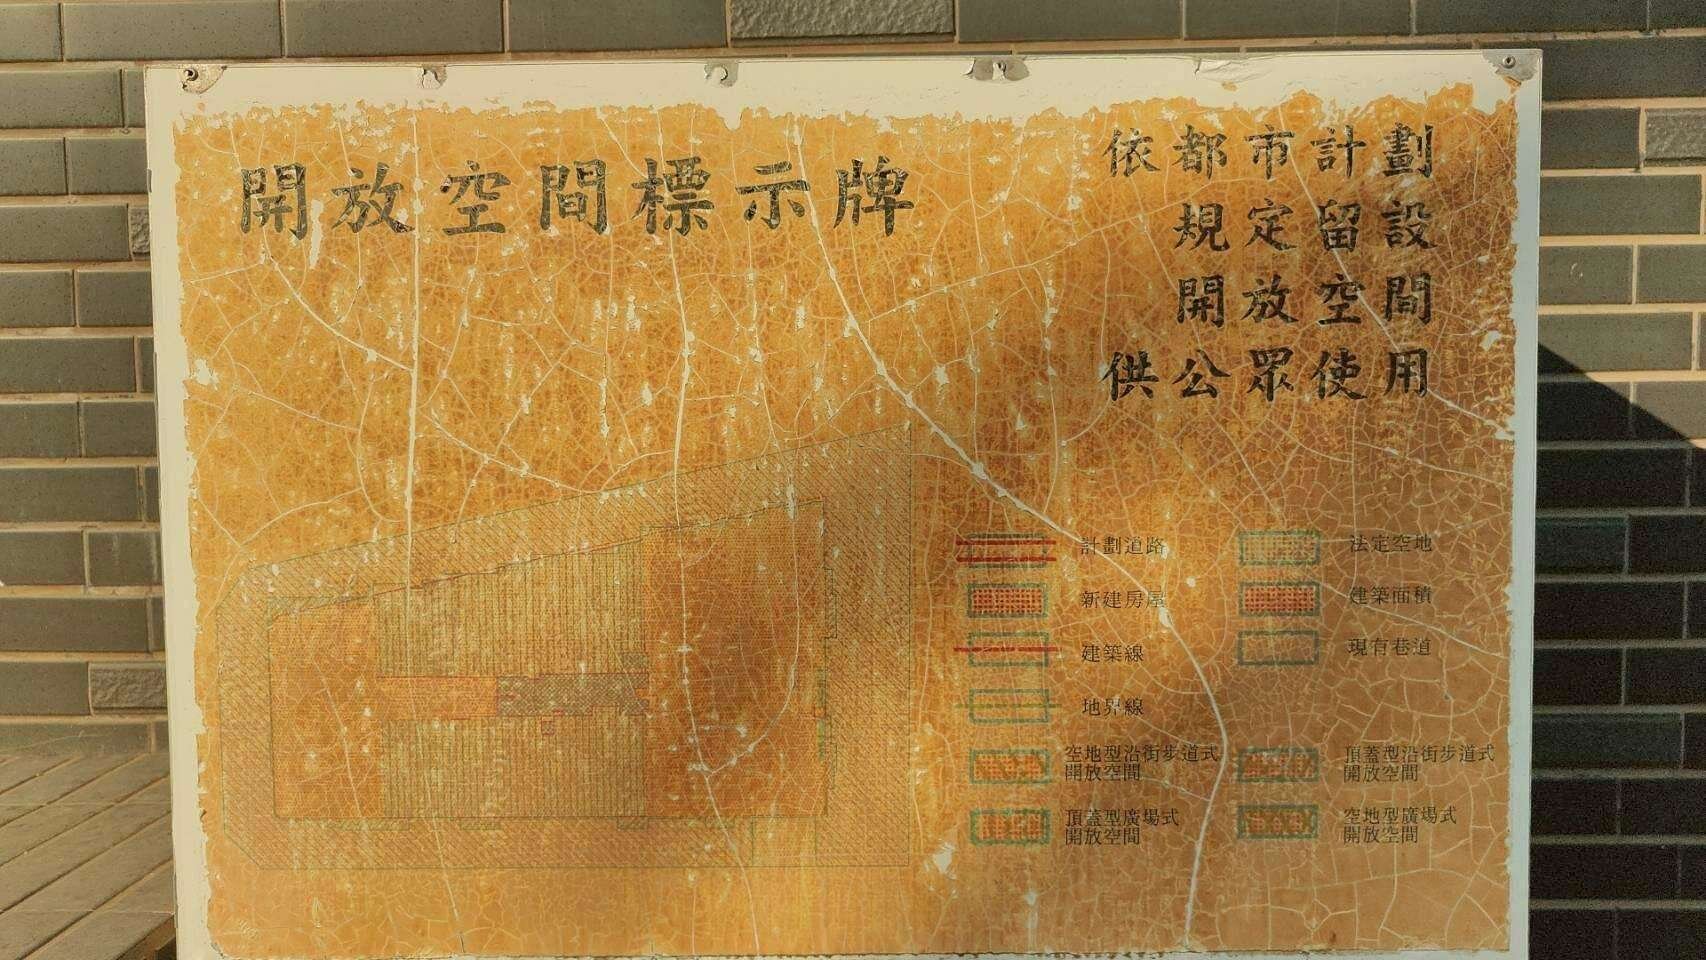 開放空間標示牌
依都市計劃
規定留設
開放空間
供公眾使用
計劃道路
法定空地
新建房屋
建築面積
建築線
現有巷道
地界線
空地型沿街步道式
開放空間
頂蓋型沿街步道式
開放空間
頂蓋型廣場式
開放空間
空地型廣場式
開放空間